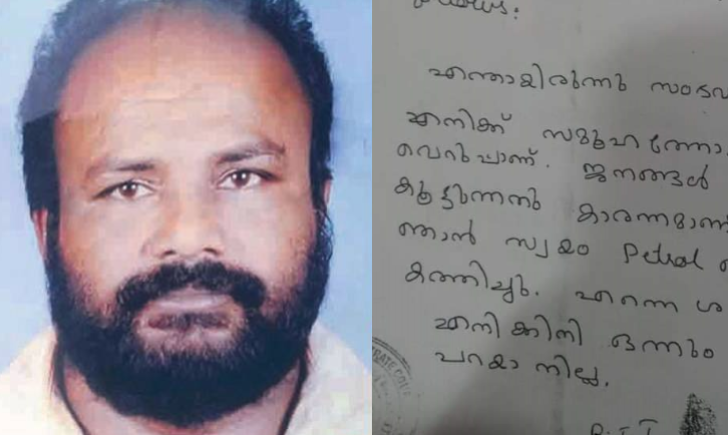 എന്തായിരുന്നു
എനിക്ക് സമൂഹത്തോ
വെറുപ്പാണ്. ജനങ്ങൾ
കൂട്ടുന്നതു കാരണമാണ്
ഞാൻ സ്വയം Petrol
കത്തിച്ചു. എന്നെ ശ
എനിക്കിനി ഒന്നും
പറയാനില്ല.